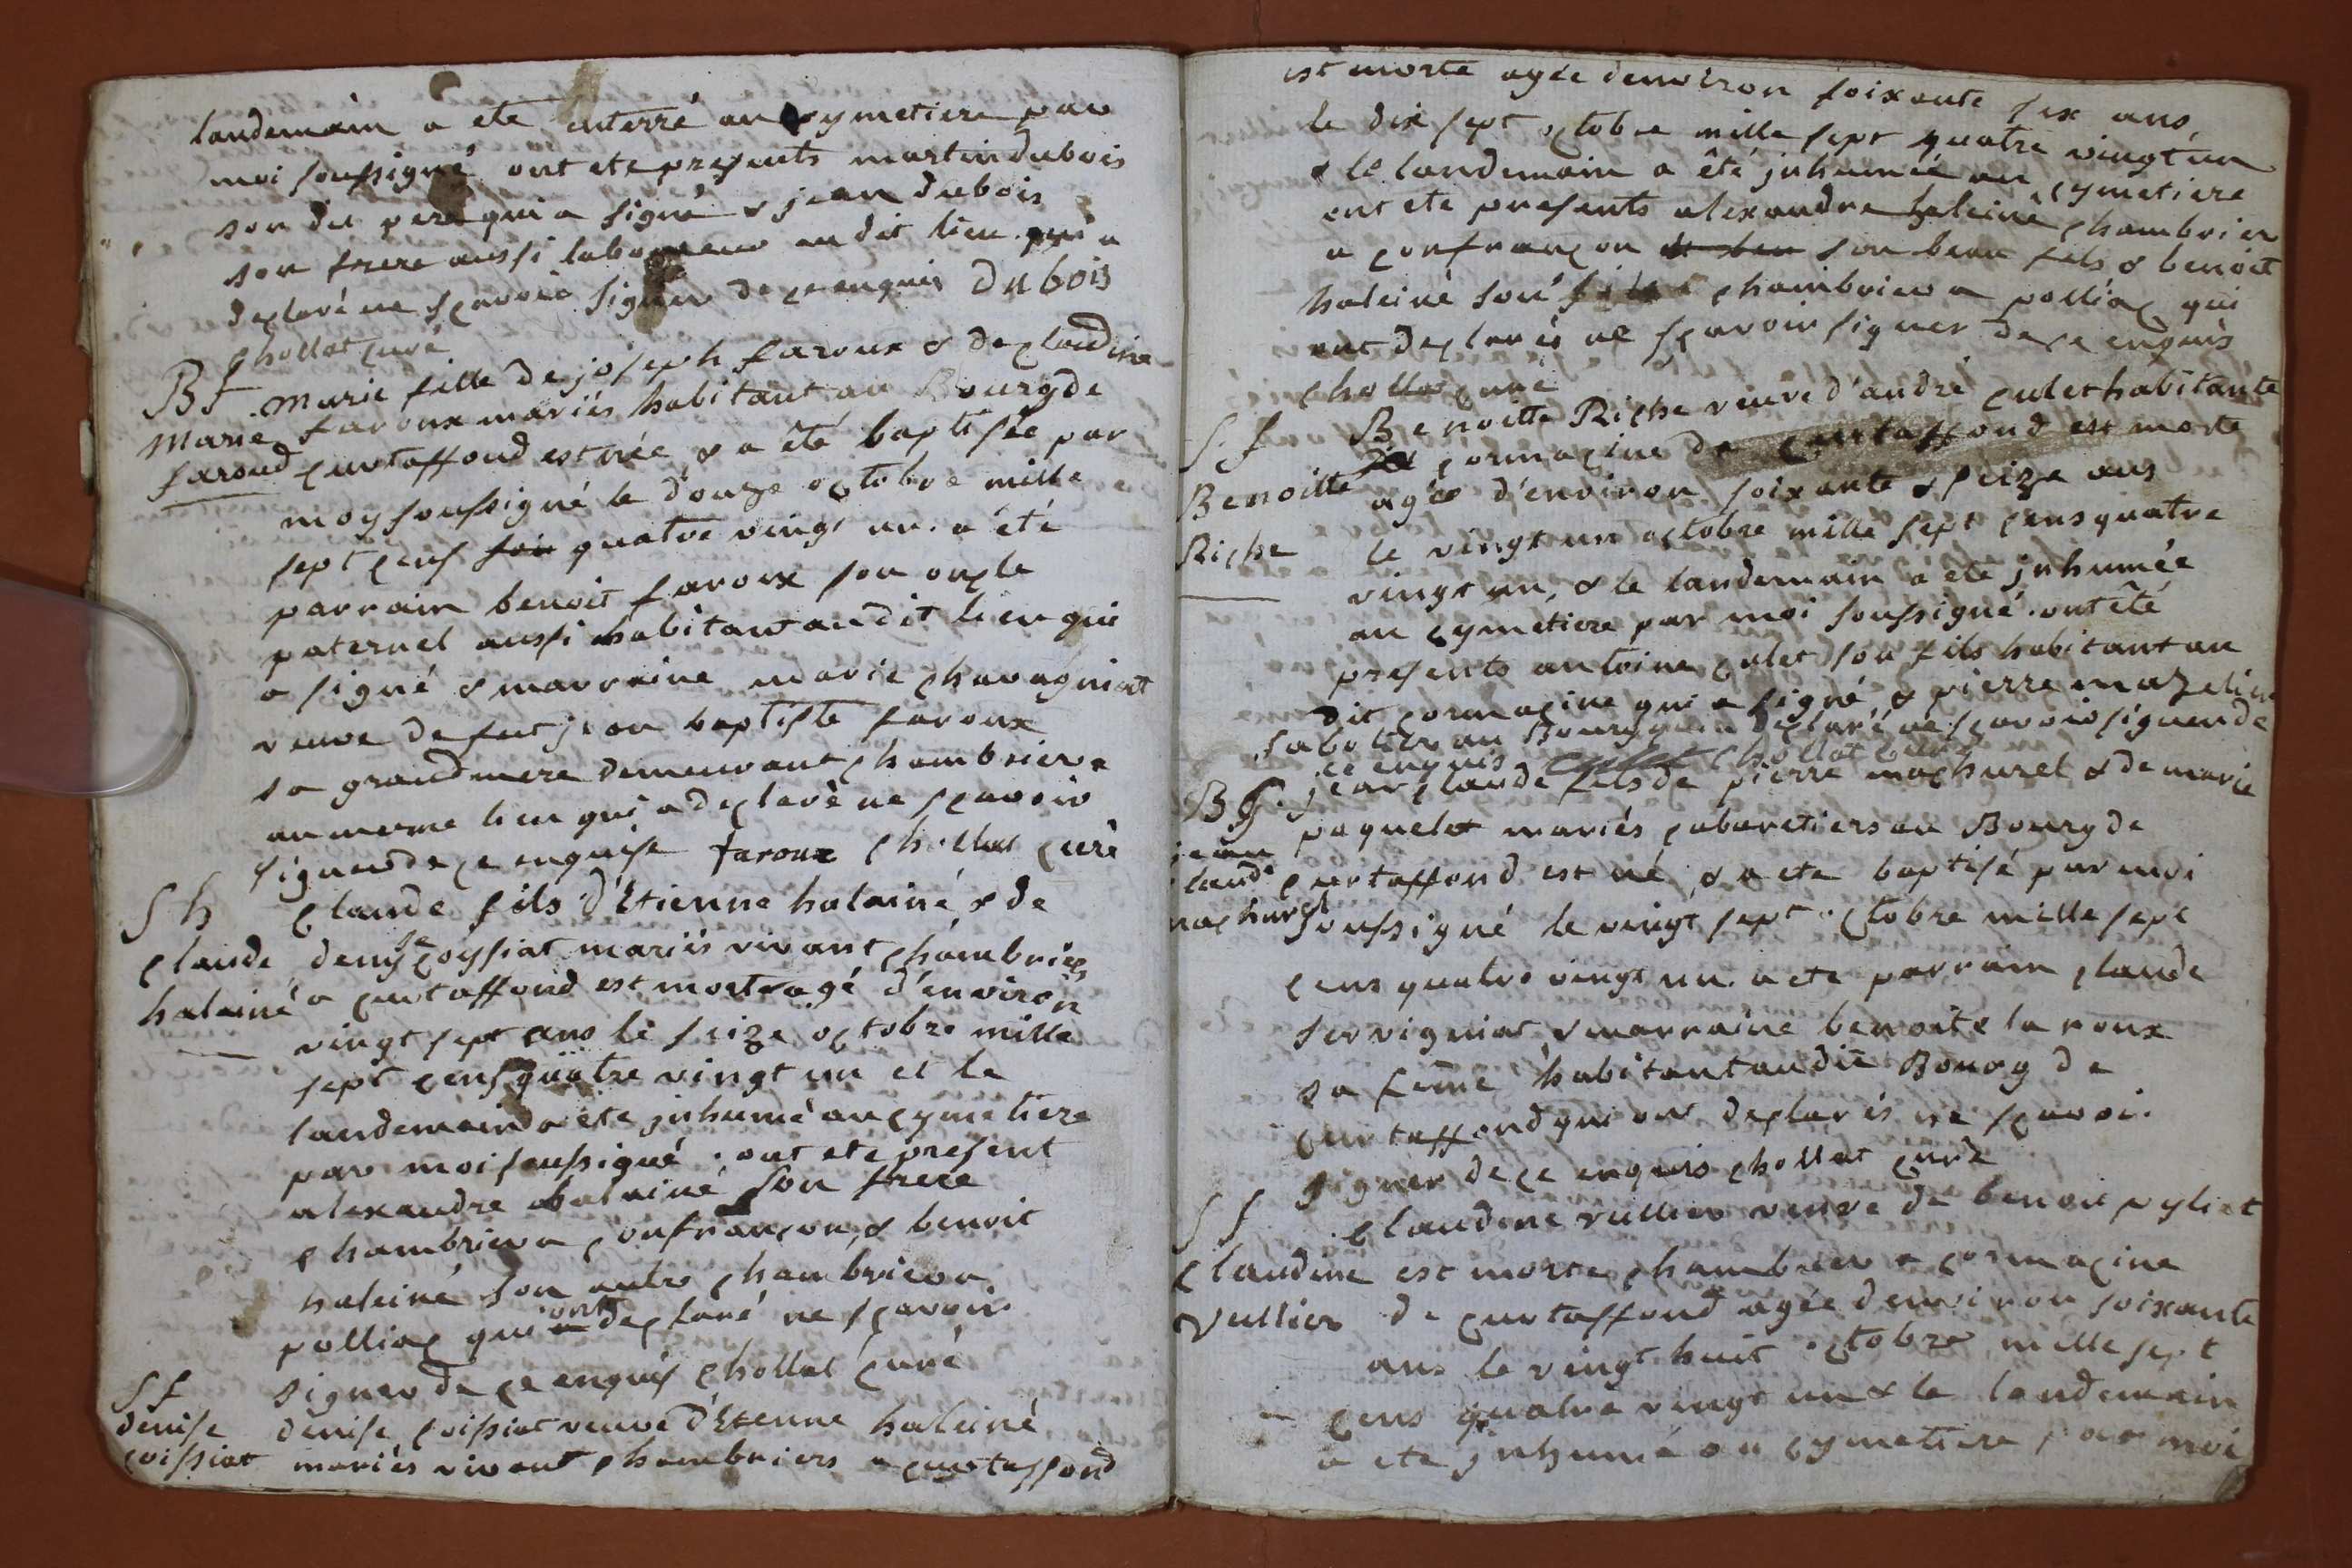 landemain a ete enterré au cymetiere par
moi soussigné ont ete presents martin dubois
son dit pere qui a signé & jean dubois
son frere aussi laboureur au dit lieu qui a
declaré ne sçavoir signer de ce enquis Dubois
chollat curé
BF marie fille de joseph faroux & de claudine
Marie faroux mariés habitant au Bourg de
faroud curtaffond est née & a êté baptisée par
moy soussigné le douze octobre mille
sept cens soix quatre vingt un. a été
parrain benoit faroux son oncle
paternel aussi habitant audit lieu qui
a signé & marraine marie chavagniat
veuve de fut jean baptiste faroux
sa grandmere demeurant chambriere
au meme lieu qui a declaré ne sçavoir
signer de ce enquise faroux chollat curé
Sh claude fils d'Etienne halainé & de
claude denyse coyssiat mariés vivant chambriers
halainé a curtaffond est mort agé d'environ
vingt sept ans le seize octobre mille
sept cens quatre vingt un et le
landemain a ete inhumé au cymetiere
par moi soussigné. ont ete present
alexandre halainé son frere
chambrier a confrançon, & benoit
haleiné son autre chambrier a
polliac qui ont declaré ne sçavoir
signer de ce enquis chollat curé
Sf
denise denise coissiat veuve d'Etienne haleiné
coissiat mariés vivant chambriers a curtaffond
est morte agée denviron soixante six ans,
le dix sept octobre mille sept quatre vingt un
& le landemain a êté inhumée au cymetiere
ont ete presents alexandre haleiné chambrier
a confrançon son beau fils & benoit
haleiné son chambrier a polliac qui
ont declarés ne sçavoir signer de ce enquis
chollat curé
S.f Benoitte Riche veuve d'andré culet habitante
cormacine de curtaffond est morte
Benoitte agée d'environ soixante & seize ans
Riche le vingt un octobre mille sept cens quatre
vingt un, & le landemain a ete inhumée
au cymetiere par moi soussigné. ont êté
presents antoine culet son fils habitant au
dit cormacine qui a signé, & pierre mazelin
sabotier au Bourg qui a declaré ne sçavoir signer de
ce enquis culet chollat curé
BG. jean claude fils de pierre machurel & de marie
jean paquelet mariés cabaretiers au Bourg de
claude curtaffond est né & a ete baptisé par moi
machurel soussigné le vingt sept octobre mille sept
cens quatre vingt un. a ete parrain claude
servigniat & marraine benoite la roux
sa feme habitant audit Bourg de
curtaffond qui ont declarés ne sçavoir
signer de ce enquis chollat curé
Sf claudine vullier veuve de benoit pyliat
claudine est morte chambriere a cormacine
vullier de curtaffond agée d'environ soixante
ans le vingt huit octobre mille sept
cens quatre vingt un & le landemain
a ete inhumé au cymetiere par moi